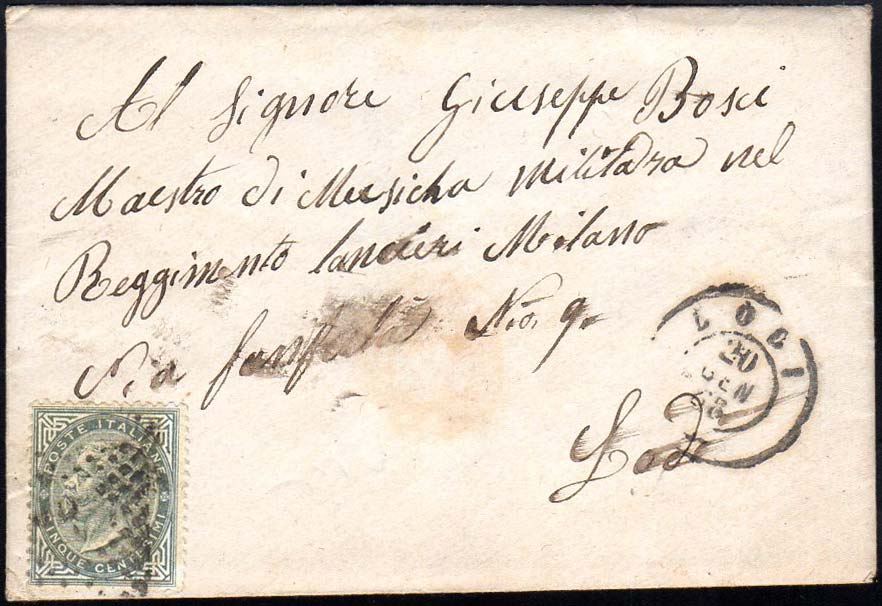 Al Signore Giuseppe Bosci
Maestro di Musicha Militara nel
Reggimento lancieri Milano
Via fanfulla No. 9.
Lodi
LODI
20
GEN
POSTE ITALIANE
CINQUE CENTESIMI